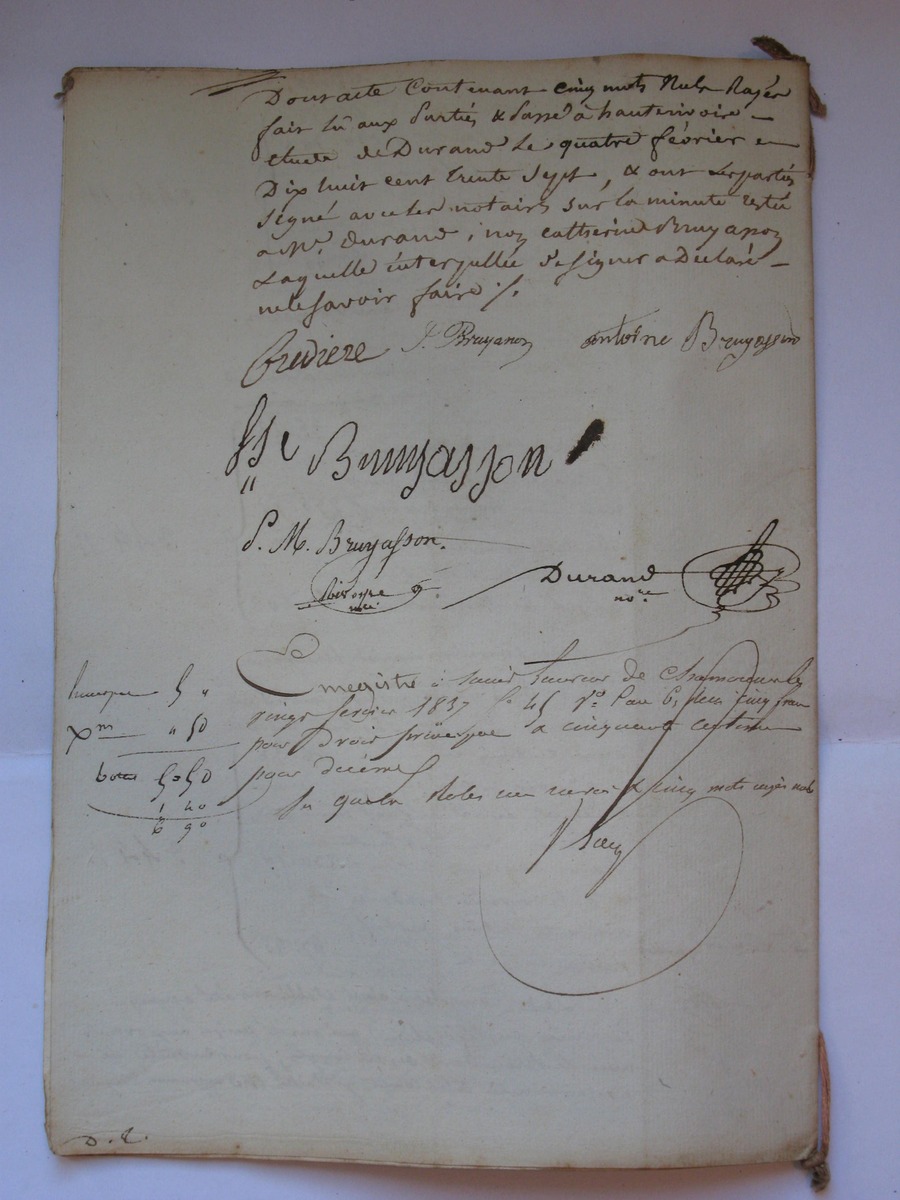 Dont acte Contenant cinq mots Nuls Rayés
fait lû aux Parties & Passé à hauterivoire
étude de Durand Le quatre février
Dix huit cent trente Sept, & ont Les parties
signé avec les notaires sur la minute restée
a Me. Durand, non catherine Bruyasson
Laquelle interpellée de signer a Déclaré
ne le savoir faire ./.
J. Bruyason antoine Bruyasson
Bruyasson
P. M. Bruyasson.
Durand
nore.
Enregistré à Saint Laurent de Chamousset le
vingt fevrier 1837 fo 45 Vo Case 6, Recu cinq francs
pour Droit principal & cinquante centimes
pour décime
mots rayés nuls
principal 5 "
Xme " 50
5 " 50
1 40
6 90
D. L.